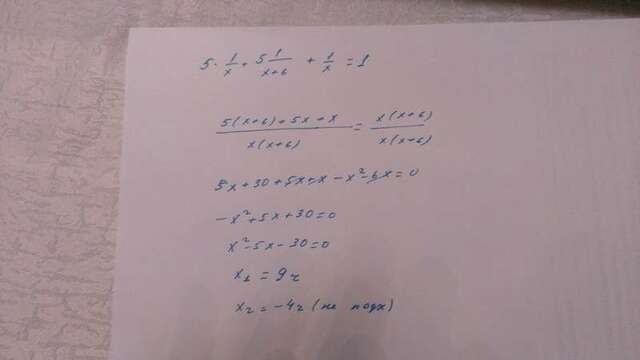 5 · 1/x + 5 1/(x+6) + 1/x = 1
(5(x+6)+5x+x)/(x(x+6)) = (x(x+6))/(x(x+6))
5x+30+5x+x-x²-6x=0
-x²+5x+30=0
x²-5x-30=0
x₁ = 9ч
x₂ = -4ч (не подх)